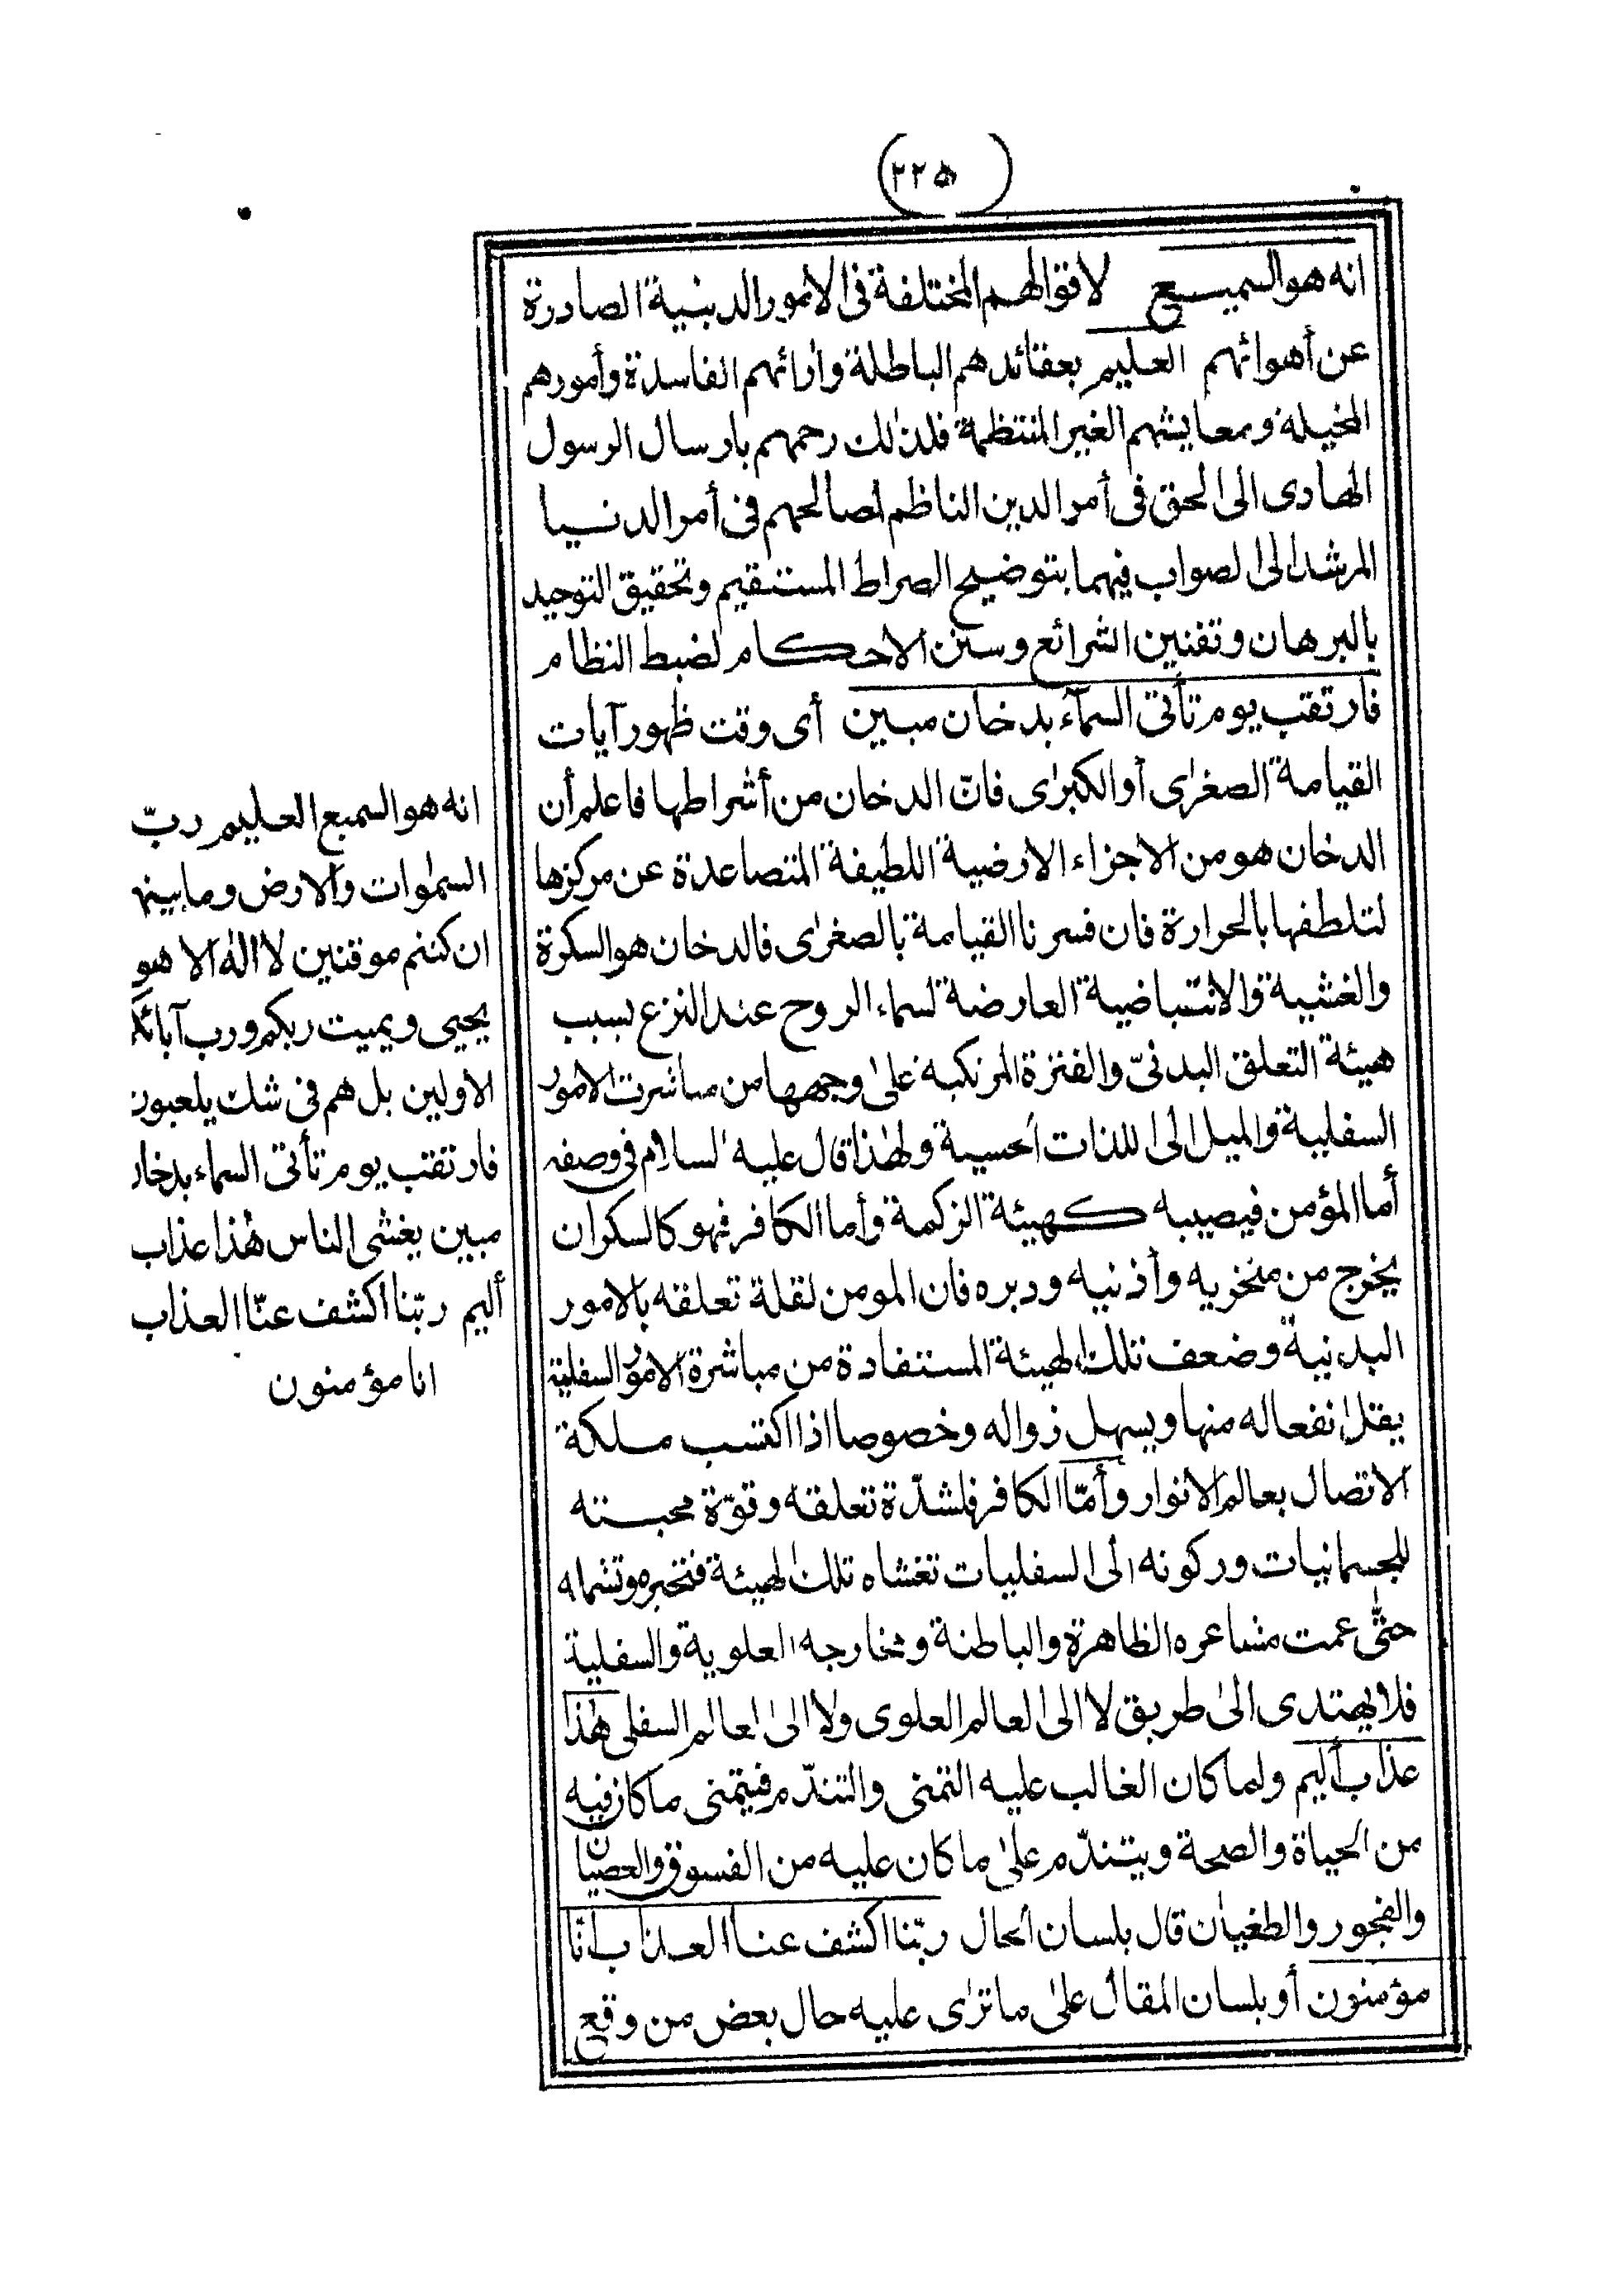 (٢٢٥)
انه هو السميع لاقوالهم المختلفة فى الامور الدينية الصادرة
عن أهوائهم العليم بعقائدهم الباطلة وارائهم الفاسدة وأمورهم
المخيلة ومعايشهم الغير المنتظمة فلذلك رحمهم بارسال الرسول
الهادى الى الحق فى أمر الدين الناظم لصالحهم فى أمر الدنيا
المرشد الى الصواب فيهما بتوضيح الصراط المستقيم وتحقيق التوحيد
بالبرهان وتفنين الشرائع وسنن الاحكام لضبط النظام
فارتقب يوم تأتى السمآء بدخان مبين أى وقت ظهور آيات
القيامة الصغرى أو الكبرى فانّ الدخان من أشراطها فاعلم أن
الدخان هو من الاجزاء الارضية اللطيفة المتصاعدة عن مركزها
لتلطفها بالحرارة فان فسرنا القيامة بالصغرى فالدخان هو السكرة
والغشية والانقباضية العارضة لسماء الروح عند النزع بسبب
هيئة التعلق البدنىّ والفترة المرتكبة على وجهها من مباشرت الامور
السفلية والميل الى اللذات الحسية ولهذا قال عليه السلام فى وصفه
أما المؤمن فيصيبه كهيئة الزكمة وأما الكافر فهو كالسكران
يخرج من منخريه وأذنيه ودبره فان المومن لقلة تعلقه بالامور
البدنية وضعف تلك الهيئة المستفادة من مباشرة الامور السفلية
يقل انفعاله منها ويسهل زواله وخصوصا اذا اكتسب ملكة
الاتصال بعالم الانوار وأمّا الكافر فلشدّة تعلقه وقوّة محبته
للجسمانيات وركونه الى السفليات تغشاه تلك الهيئة فتحيره وتشمله
حتّى عمت مشاعره الظاهرة والباطنة ومخارجه العلوية والسفلية
فلا يهتدى الى طريق لا الى العالم العلوى ولا الى العالم السفلى هذا
عذاب أليم ولما كان الغالب عليه التمنى والتندّم فيتمنى ما كان فيه
من الحياة والصحة ويتندّم على ما كان عليه من الفسوق والعصيان
والفجور والطغيان قال بلسان الحال ربّنا اكشف عنا العذاب انّا
مؤمنون أو بلسان المقال على ما ترى عليه حال بعض من وقع
انه هو السميع العليم ربّ
السموات والارض وما بينها
ان كنتم موقنين لا اله الا هو
يحيى ويميت ربكم ورب آبائكم
الاولين بل هم فى شك يلعبون
فارتقب يوم تأتى السماء بدخان
مبين يغشى الناس هذا عذاب
أليم ربّنا اكشف عنّا العذاب
انا مؤمنون